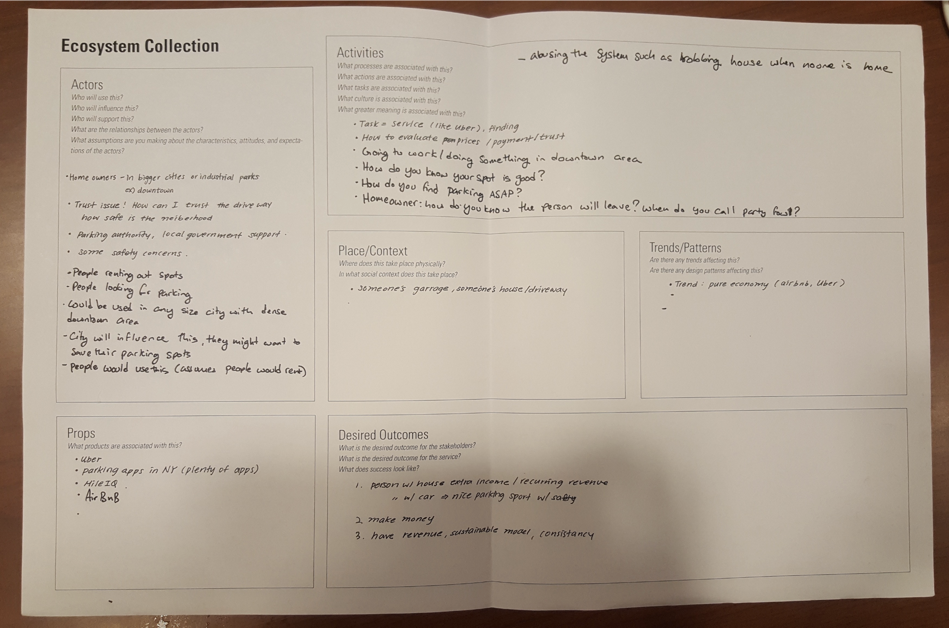 Ecosystem Collection
Actors
Who will use this?
Who will influence this?
Who will support this?
What are the relationships between the actors?
What assumptions are you making about the characteristics, attitudes, and expecta-
tions of the actors?
• Home owners – In bigger cities or industrial parks
ex) downtown
• Trust issue! How can I trust the drive way
how safe is the neiberhood
• Parking authority, local government support.
• some safety concerns.
- People renting out spots
- People looking for parking
- Could be used in any size city with dense
downtown area
- City will influence this, they might want to
save their parking spots
- People would use this (assumes people would rent)
Activities
What processes are associated with this?
What actions are associated with this?
What tasks are associated with this?
What culture is associated with this?
What greater meaning is associated with this?
– abusing the system such as robbing house when noone is home
• Task = service (like uber), finding
• How to evaluate prices / payment / trust
• Going to work / doing something in downtown area
• How do you know your spot is good?
• How do you find parking ASAP?
• Homeowner: how do you know the person will leave? When do you call party foul?
Place/Context
Where does this take place physically?
In what social context does this take place?
• someone's garrage, someone's house/driveway
Trends/Patterns
Are there any trends affecting this?
Are there any design patterns affecting this?
• Trend: pure economy (airbnb, Uber)
-
–
Props
What products are associated with this?
• Uber
• parking apps in NY (plenty of apps)
• MileIQ
• AirBnB
•
Desired Outcomes
What is the desired outcome for the stakeholders?
What is the desired outcome for the service?
What does success look like?
1. person w/ house extra income / recurring revenue
" w/ car → nice parking sport w/ safty
2. make money
3. have revenue, sustainable model, consistancy